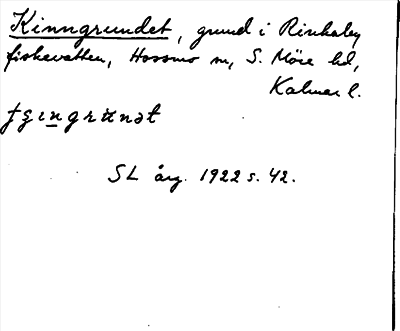 Kinngrundet, grund i Rinkaby
fiskevatten, Hossmo sn, S. Möre hd,
Kalmar l.
SL årg. 1922 s. 42.